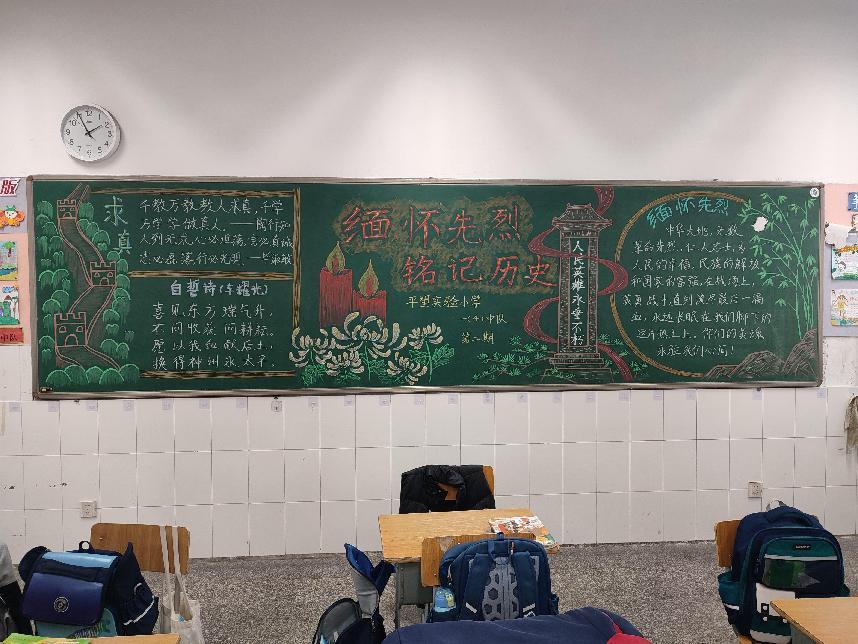 求真
千教万教教人求真，千学
万学学做真人。——陶行知
自誓诗(车耀先)
喜见东方瑞气升，
不问收获问耕耘。
愿以我血献后土，
换得神州永太平
缅怀先烈
铭记历史
平型实验小学
中队
第一期
人民英雄永垂不朽
缅怀先烈
中华大地，无数
革命先烈、仁人志士，为
人民的幸福，民族的解放
和国家的富强，在战场上，
英勇战斗，直到流尽最后一滴
血，永远长眠在我们脚下的
这片热土上。你们的英魂
永驻我们心间！